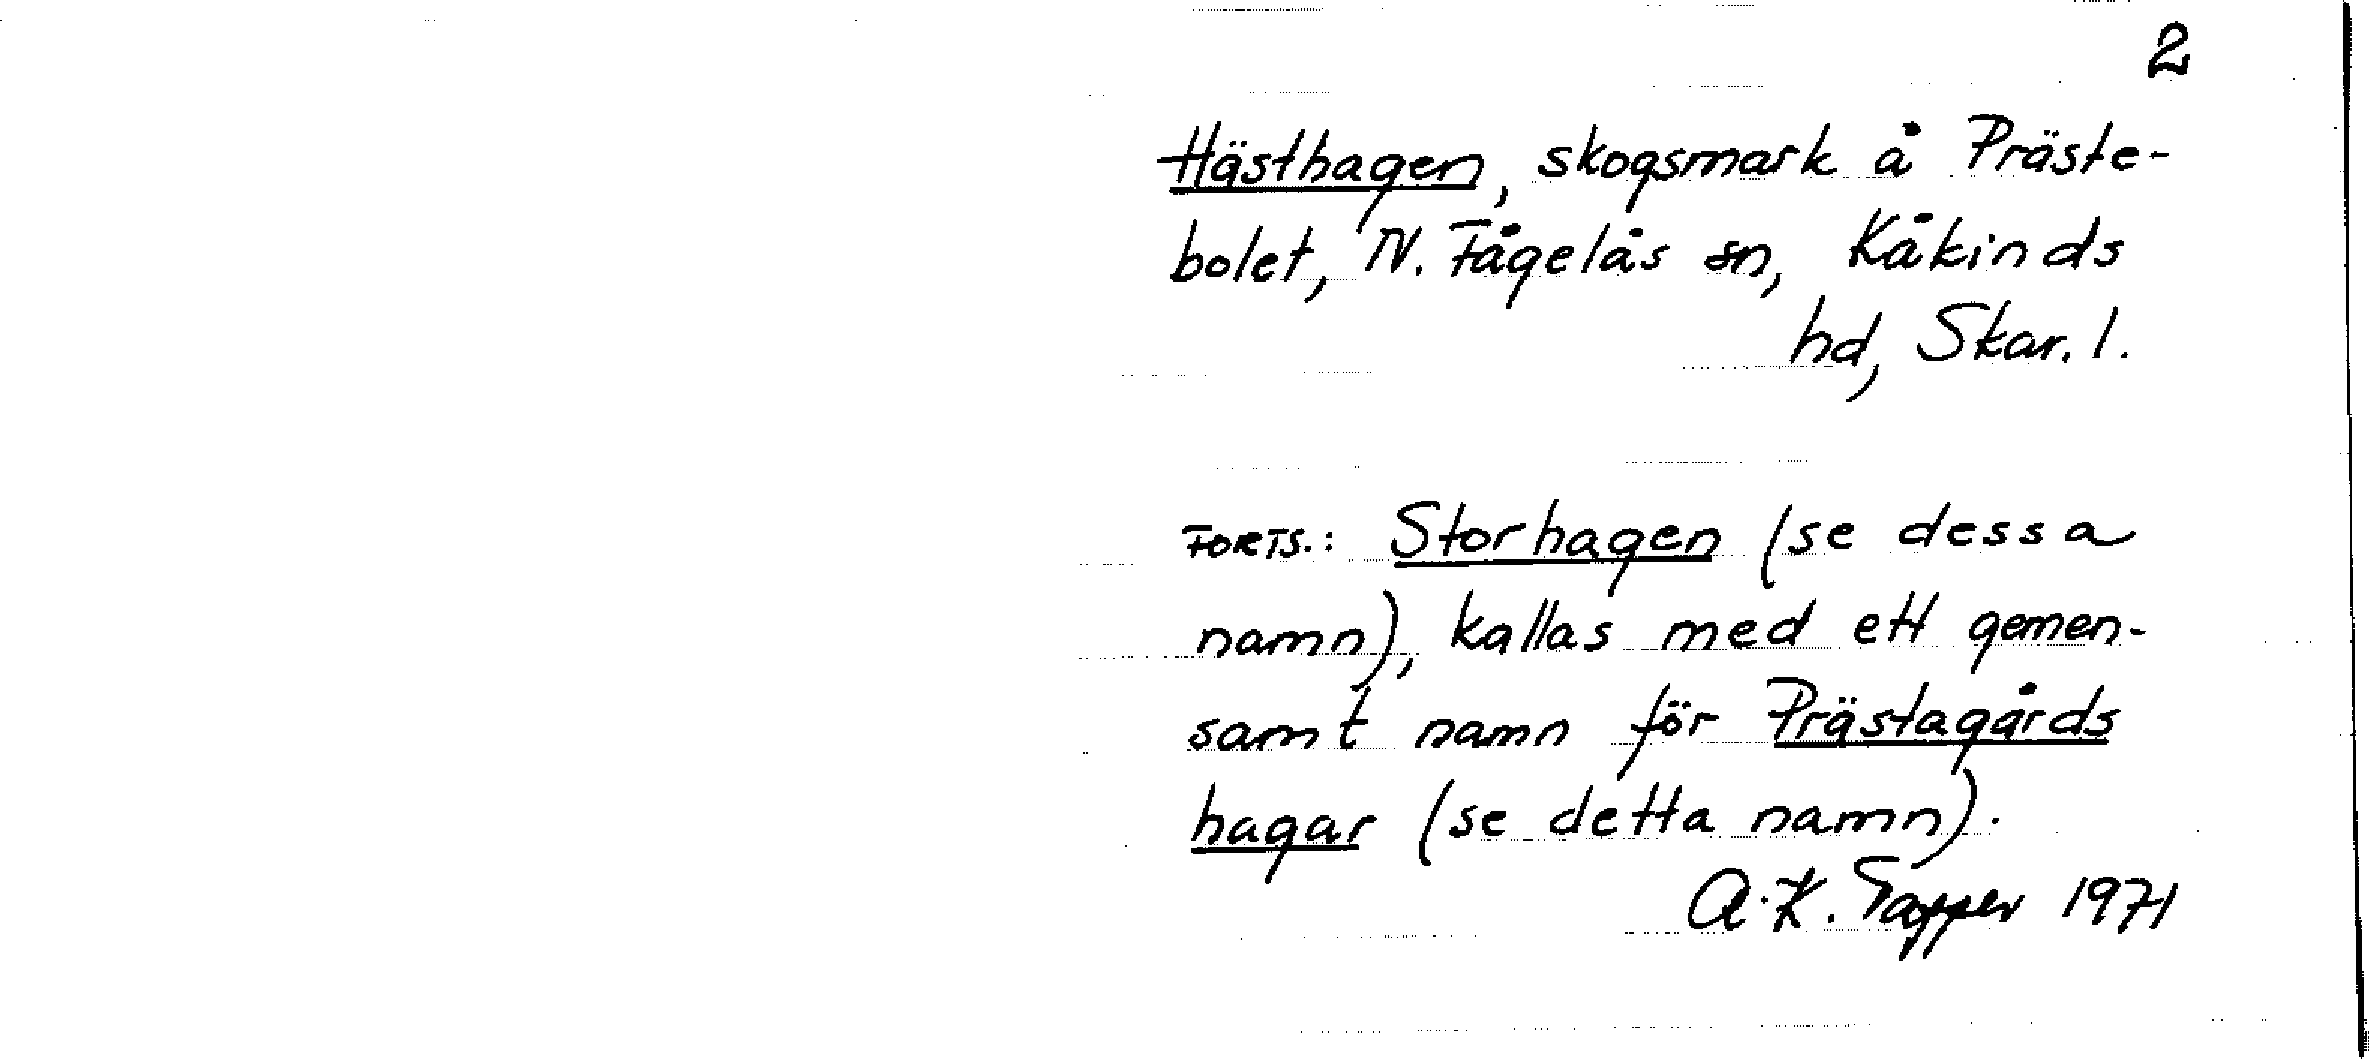 2
Hästhagen, skogsmark å Präste-
bolet, N. Fågelås sn, Kåkinds
hd, Skar. l.
FORTS.: Storhagen (se dessa
namn), kallas med ett gemen-
samt namn för Prästagårds
hagar (se detta namn).
A.K. Tapper 1971